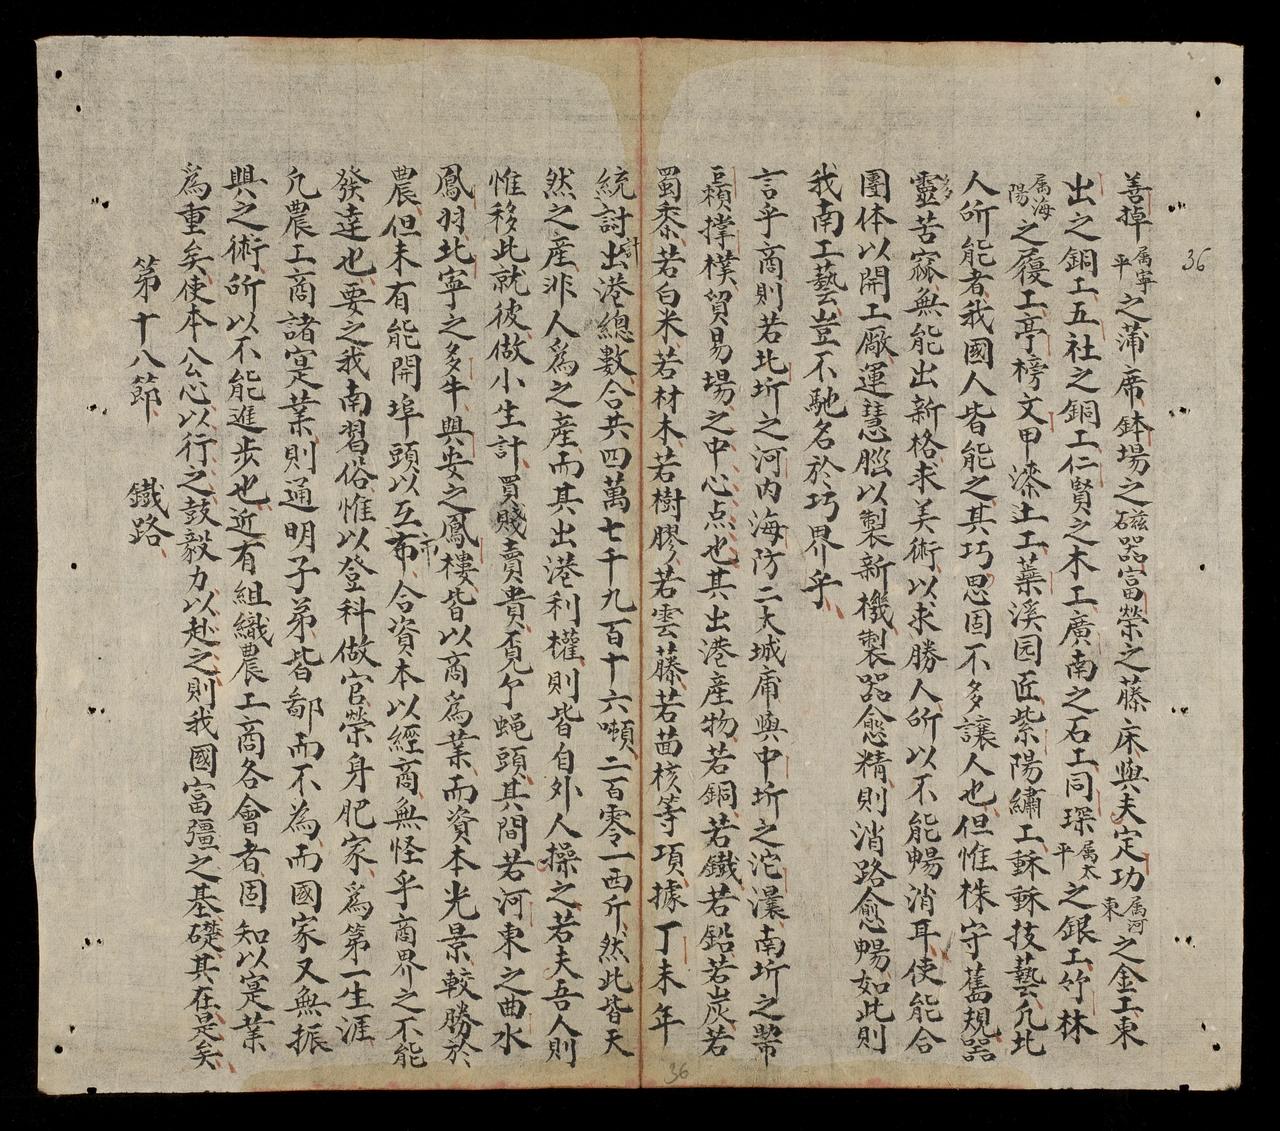 36
善掉属寧平之蒲席鉢場之磁器富荣之藤床與夫定功属河東之金工東
出之銅工五社之銅工仁賢之木工廣南之石工同琛属太平之銀工竹林
属海陽之履工亭榜文甲漆土工葉溪园匠紫陽繡工穌穌技藝凢北
人所能者我國人皆能之其巧思固不多讓人也但惟株守舊規器
多靈苦窳無能出新格求美術以求勝人所以不能暢消耳使能合
團体以開工廠運慧腦以製新機製器愈精則消路愈暢如此則
我南工藝豈不馳名於巧界乎
言乎商則若北圻之河内海防二大城庯與中圻之沱㶞南圻之幣
𪀄賴撑樸貿易場之中心点也其出港産物若銅若鐵若鉛若炭若
蜀黍若白米若材木若樹膠若雲藤若茴核等項據丁未年
統討計出港總數合共四萬七千九百十六噸二百零一西斤然此皆天
然之産非人爲之産而其出港利權則皆自外人操之若夫吾人則
惟移此就彼做小生計買賤賣貴覔分蝇頭其間若河東之曲水
鳳羽北寧之多牛與安之鳳樓皆以商爲業而資本光景較勝於
農但未有能開埠頭以互布市合資本以經商無怪乎商界之不能
發達也要之我南習俗惟以登科做官榮身肥家爲第一生涯
凢農工商諸寔業則通明子弟皆鄙而不為而國家又無振
興之術所以不能進步也近有組織農工商各會者固知以寔業
爲重矣使本公心以行之鼓毅力以赴之則我國富彊之基礎其在是矣
第十八節 鐵路
36